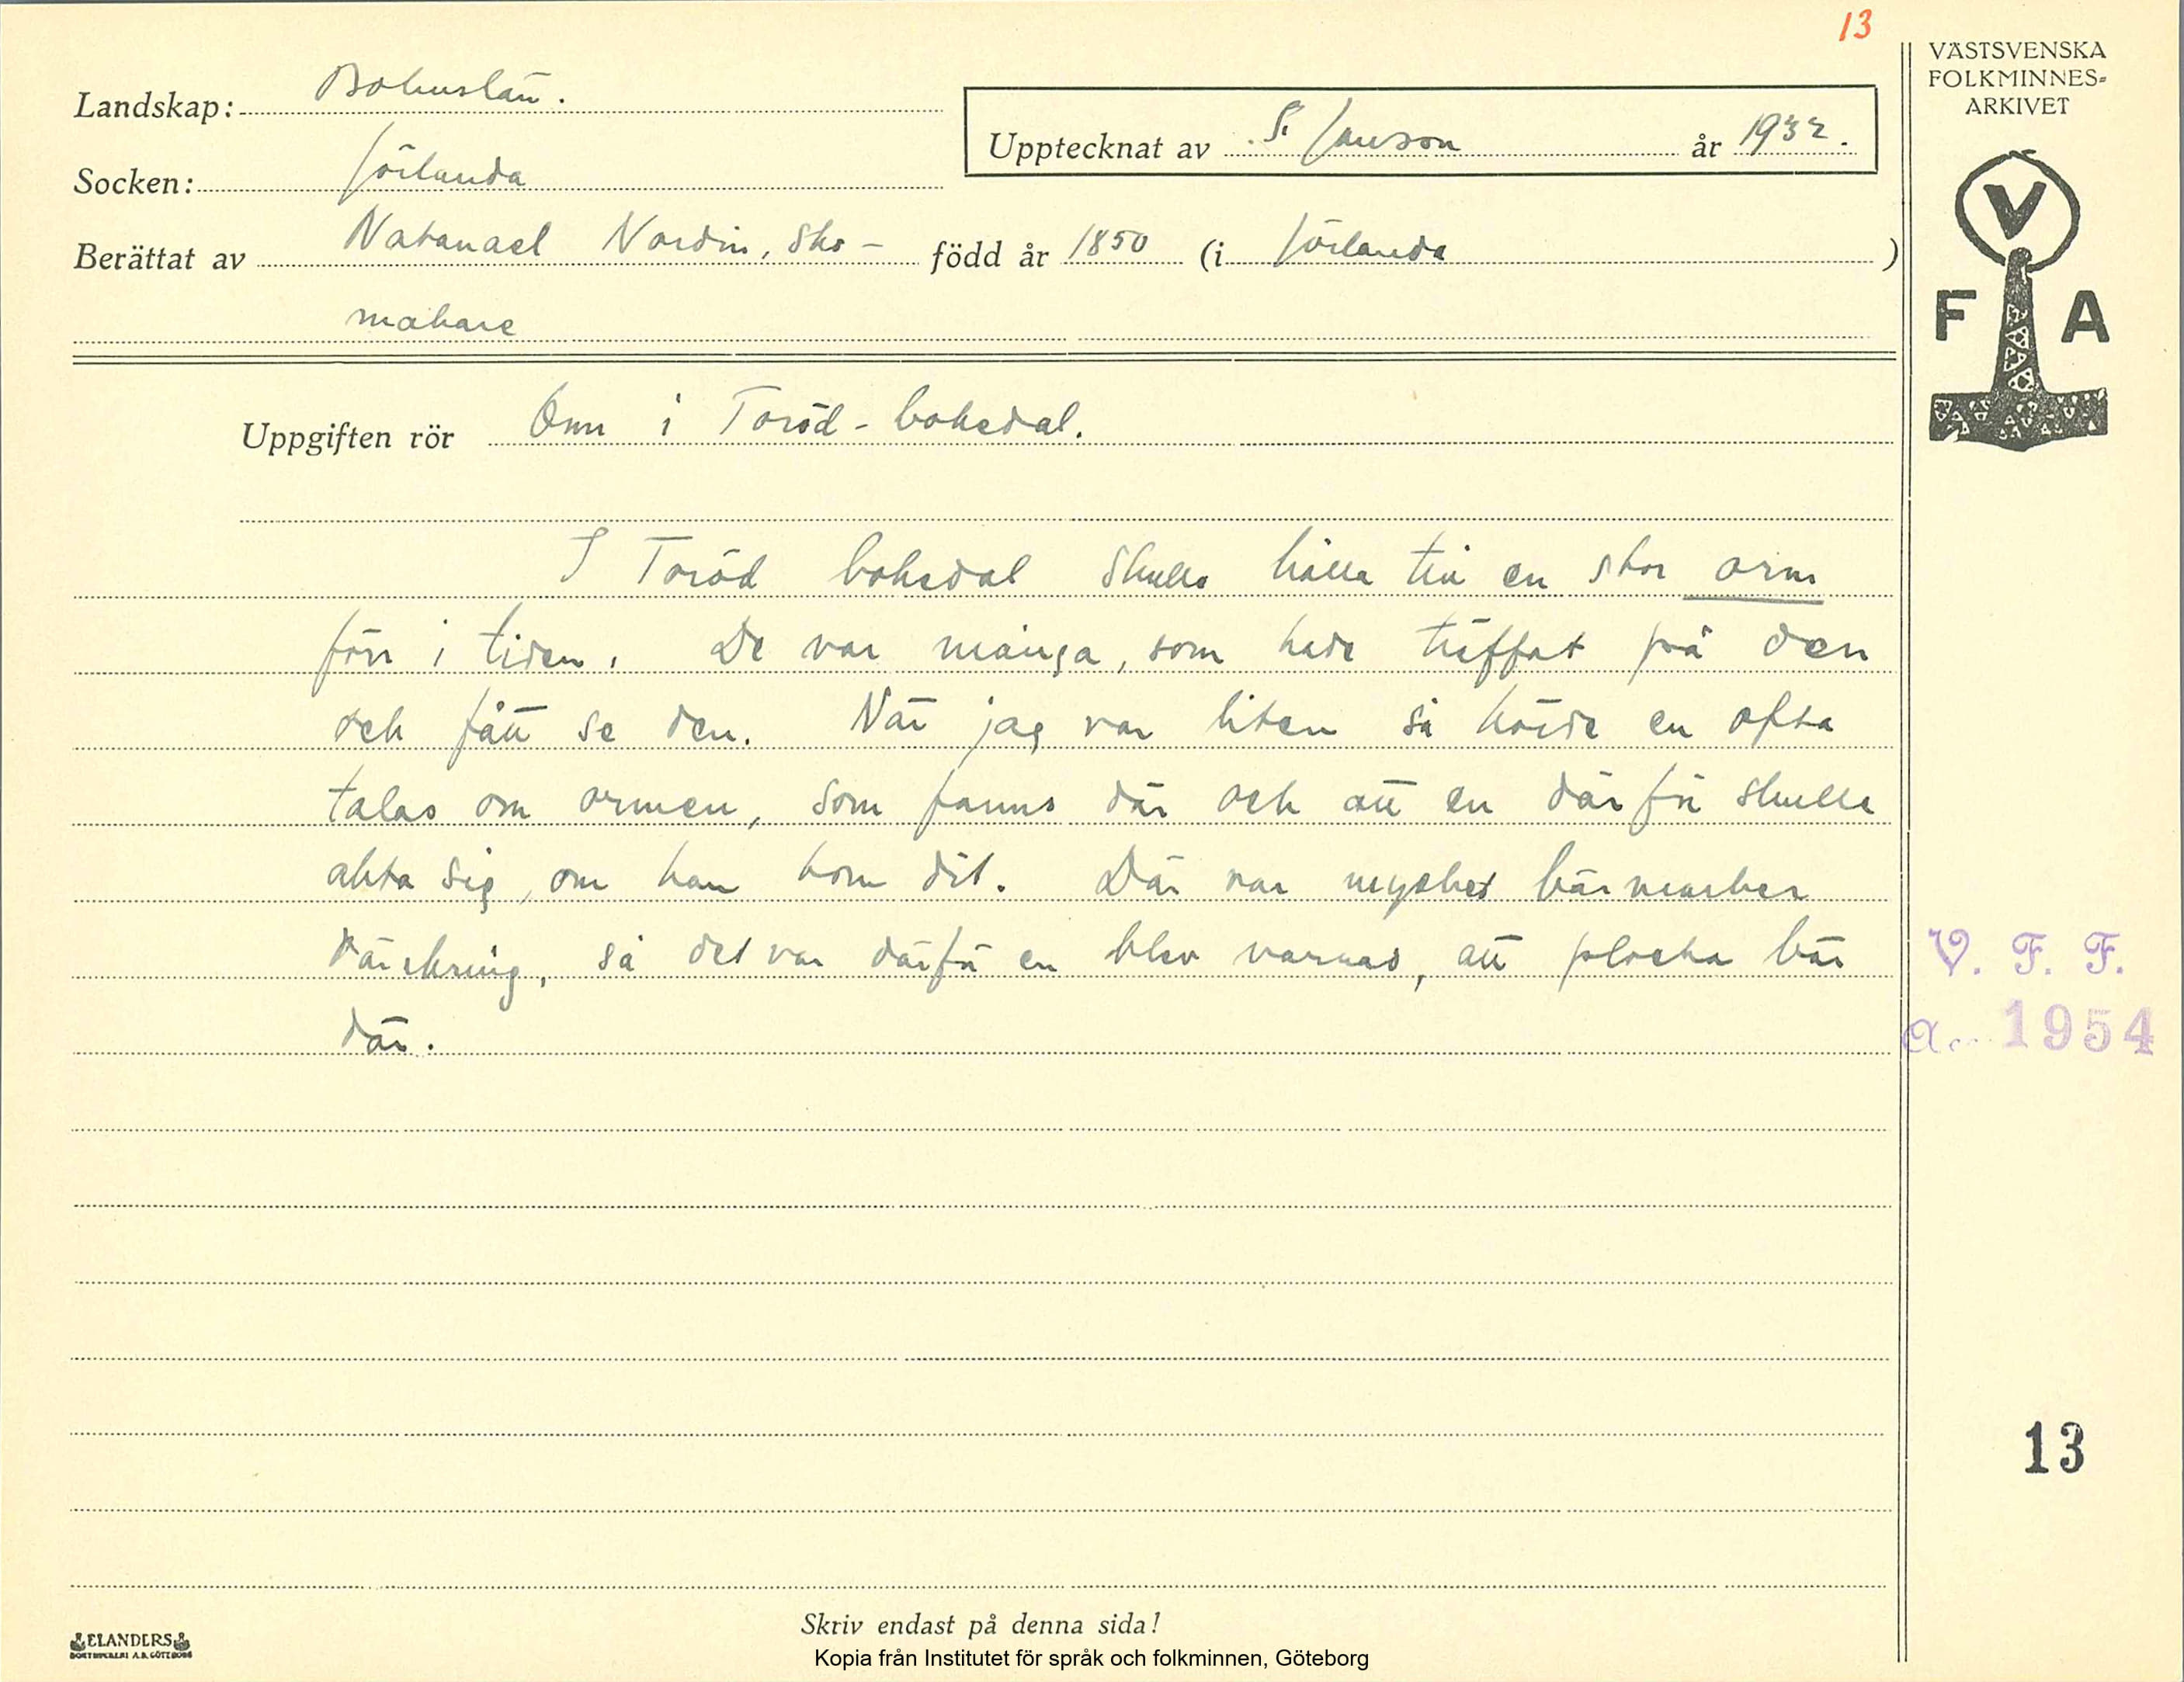 13
VÄSTSVENSKA
FOLKMINNES-
ARKIVET
Landskap: Bohuslän.
Upptecknat av S. Janson år 1932.
Socken: Jörlanda
Berättat av Natanael Nordin, sko- född år 1850 (i Jörlanda)
makare
V
F A
Uppgiften rör Orm i Toröd-bokedal.
I Toröd bokedal skulle hålla till en stor orm
förr i tiden. De var många, som hade träffat på den
och fått se den. När jag var liten så hörde en ofta
talas om ormen, som fanns där och att en därför skulle
akta sig, om han kom dit. Där var mycket bärmarker
däromkring, så det var därför en blev varnad, att plocka bär
där.
V. F. F.
1954
13
Skriv endast på denna sida!
ELANDERS
BOKTRYCKERI A.B. GÖTEBORG
Kopia från Institutet för språk och folkminnen, Göteborg